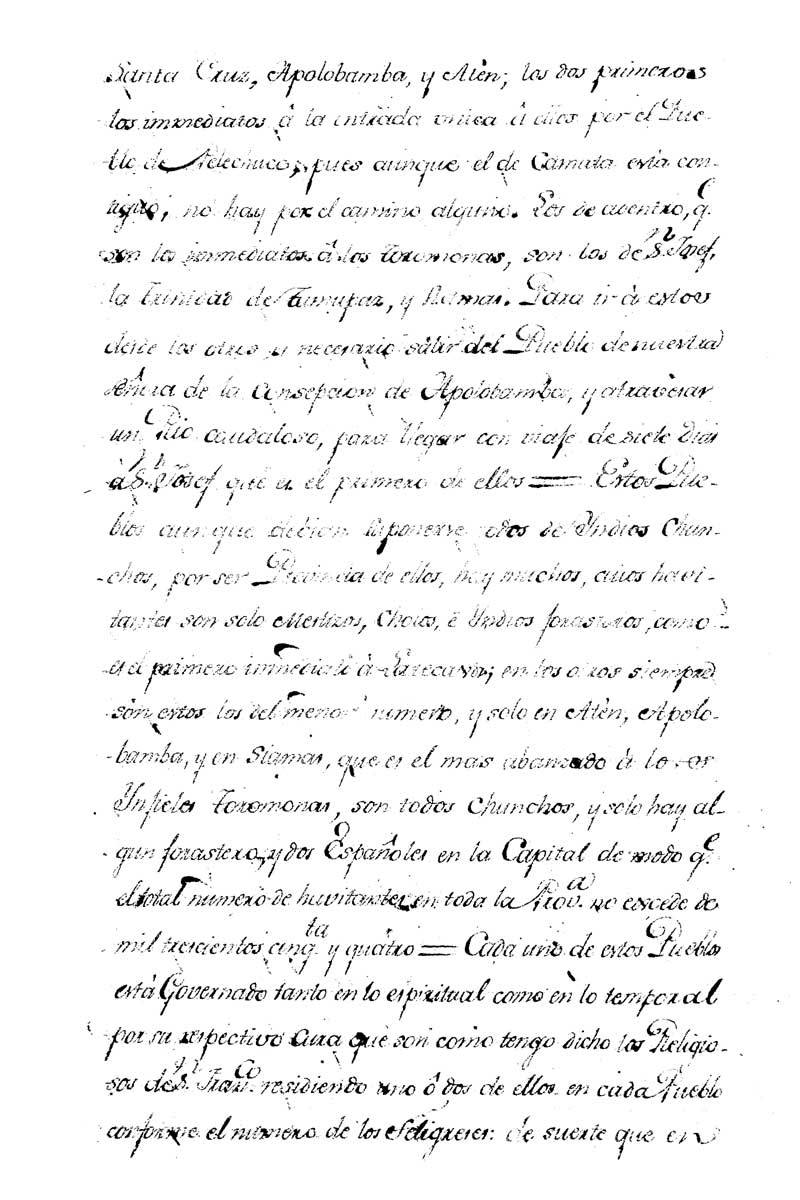 Santa Cruz, Apolobamba, y Atèn; los dos primeros
los immediatos â la entrada vnica â ellos por el Pue-
blo de Pelechuco, pues aunque el de Camata està con-
tiguo, no hay por el camino alguno. Los de adentro, q.e
son los immediatos â los Toromonas, son los de S.n Josef,
la Trinidad de Tumupaz, y Siamas. Para ir â estos
desde los otros es necesario salir del Pueblo de nuestra
señora de la Consepcion de Apolobamba, y atravesar
un Rio caudaloso, para llegar con viaje de siete dias
â S.n Josef que es el primero de ellos = Estos Pue-
blos aunque debian suponerse todos de Yndios Chun-
chos, por ser Provincia de ellos, hay muchos, cuios havi-
tantes son solo Mestizos, Cholos, è Yndios forasteros, como
es el primero immediato â Larecaxa; en los otros siempre
son estos los del menor numero, y solo en Atèn, Apolo-
bamba, y en Siamas, que es el mas abanzado â los
Ynfieles Toromonas, son todos Chunchos, y solo hay al-
gun forastero, y dos Españoles en la Capital de modo q.e
el total numero de havitantes en toda la Prov.a no excede de
mil trescientos cinq.ta y quàtro = Cada uno de estos Pueblos
està Governado tanto en lo espiritual como en lo temporal
por su respectivo Cura que son como tengo dicho los Religio-
sos de S.n Fran.co residiendo uno ô dos de ellos en cada Pueblo
conforme el numero de los Feligreses: de suerte que en